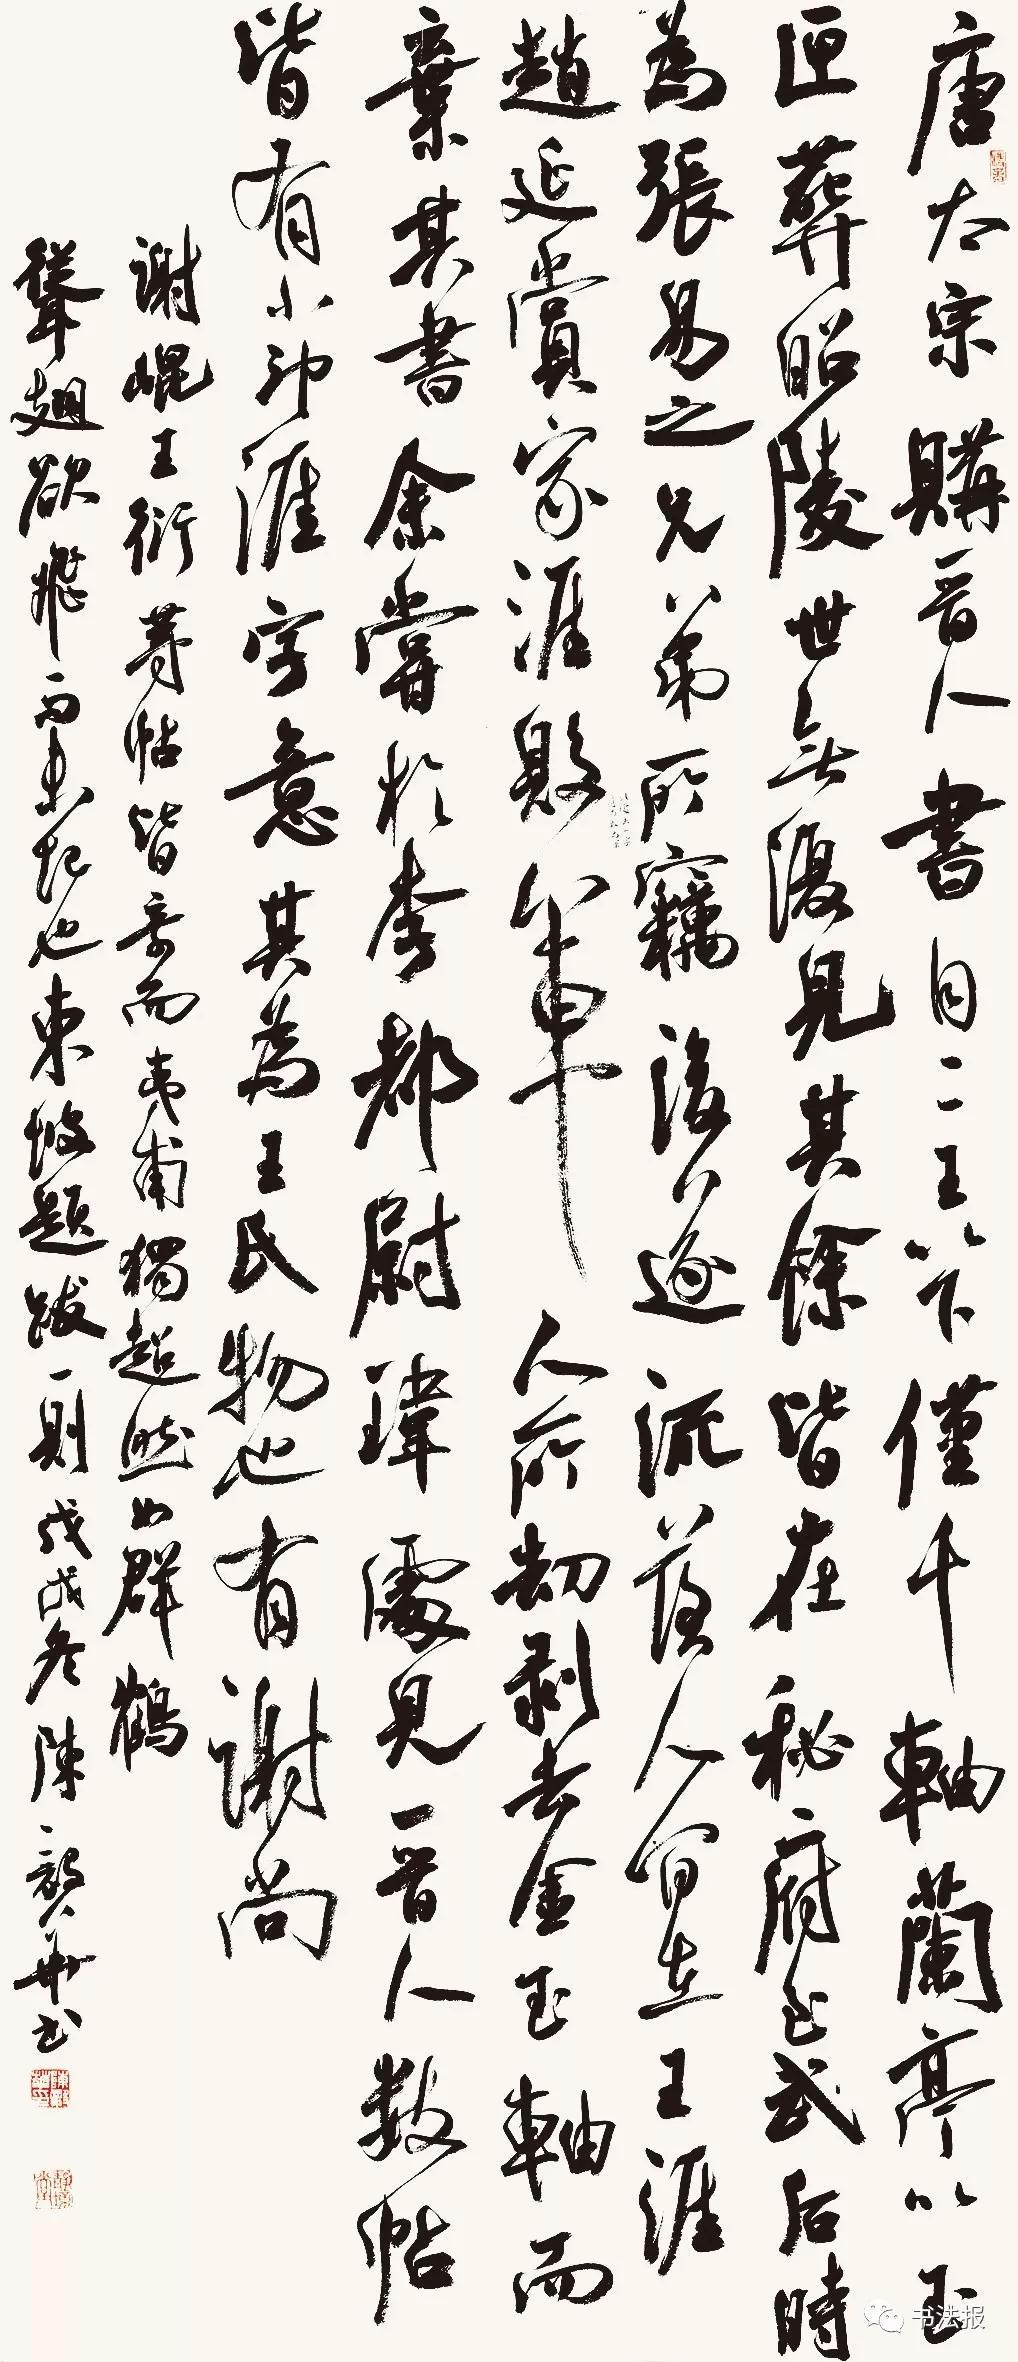 唐太宗購晉人書自二王以下僅千軸蘭亭以玉
匣葬昭陵世無復見其餘皆在秘府至武后時
為張易之兄弟所竊後遂流落人間在王涯
趙延賞家涯敗為軍人所劫剥去金玉軸而
棄其書余嘗於李都尉瑋處見晉人數帖
皆有小印涯字意其為王氏物也有謝尚
謝鯤王衍等帖皆奇而夷甫獨超然如群鶴
聳翅欲飛而未起也東坡題跋一則戊戌冬陳龔華书
书法报